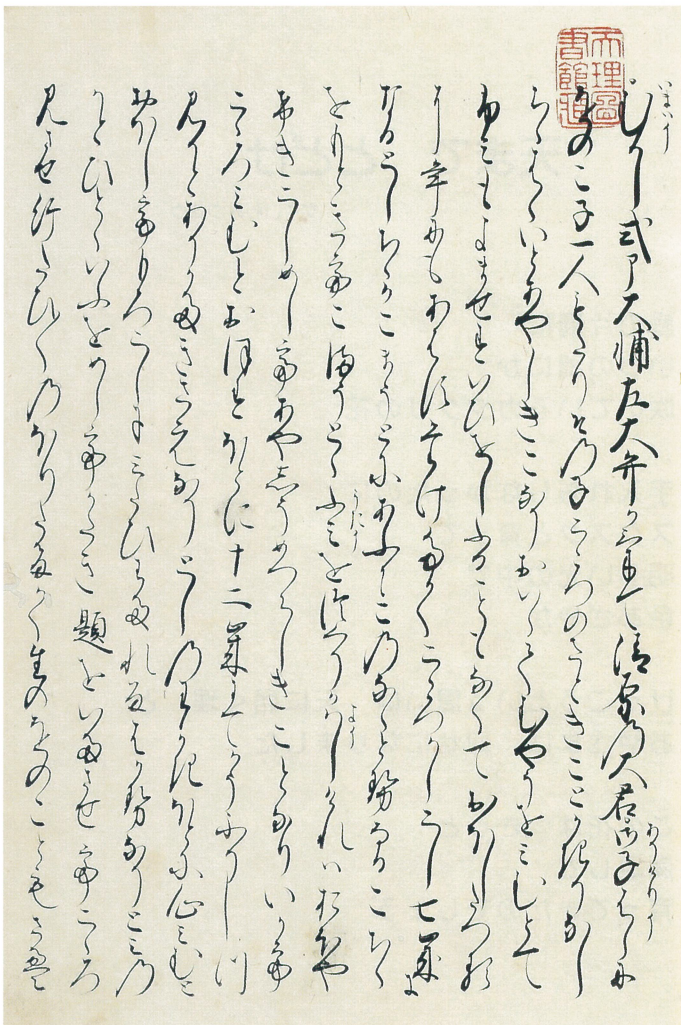 天理圖
書館蔵
むかし式部大輔左大弁かけて清原の大君御子はらに
ありけり
をのこ子一人もたりその子こゝろのさときことかきりなし
ちゝはゝいとあやしきこなりおいいてむやうをみむとて
ふみもよませすいひをしふることもなくておほしたつる
に年にもあはすたけたかくこゝろかしこし七歳に
なるとしちゝかこまうとにあふにこのなゝとせなるこちゝ
をもときてこまうとゝふみをつくりかはしけれはおほや
けきこしめしてあやしうめつらしきことなりいかて
こゝろみむとおほすほとに十二歳にてかうふりしつ
みかとありかたきさえなりとしのわかきほとに心みむと
おほしてもろこしにみたひわたれるはかせなかとみの
かとひとゝいふをめしてかたき題をいたさせてこゝろ
かく生のをのこともさえ